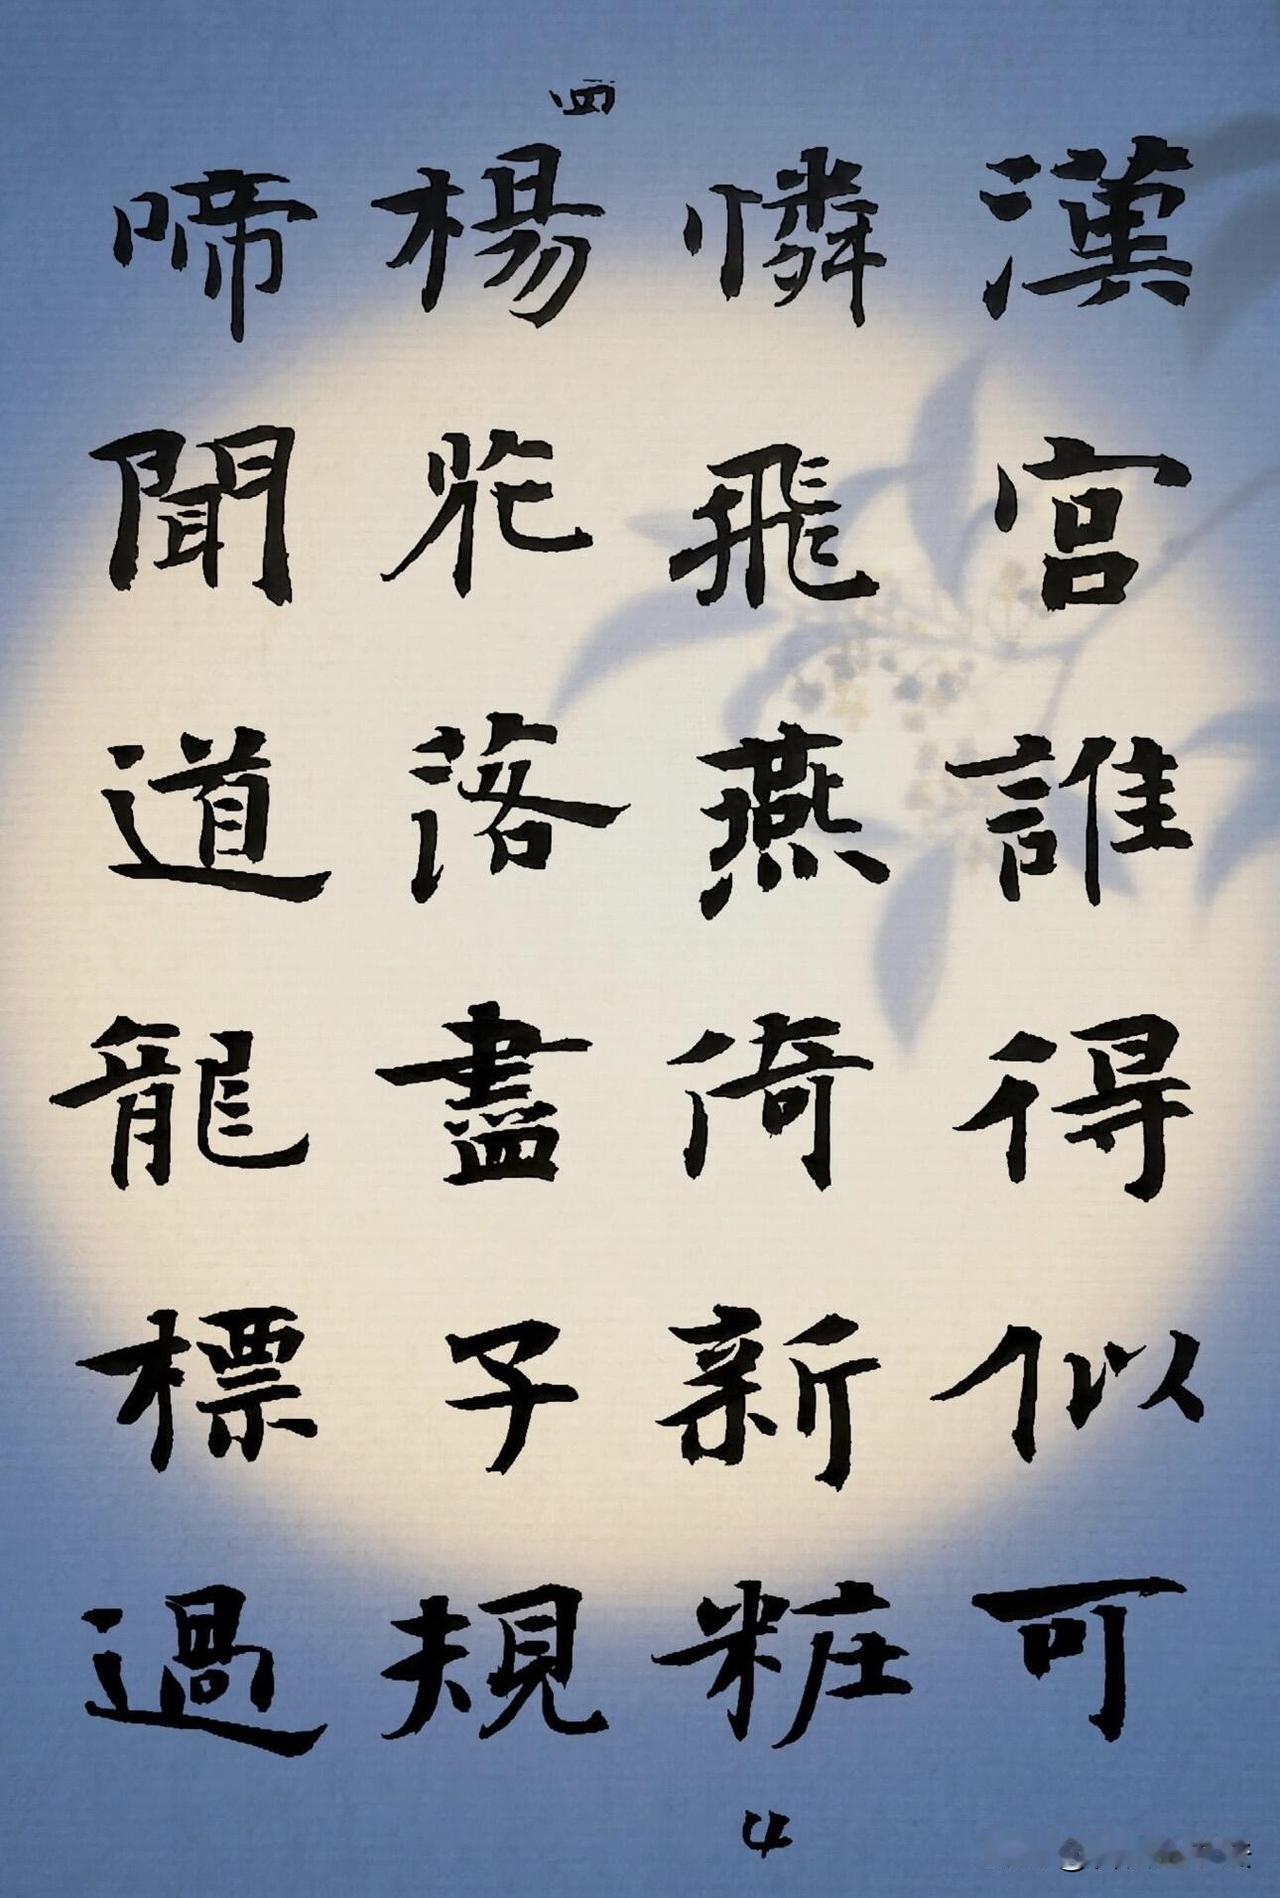 漢宮誰得似可
憐飛燕倚新粧
楊花落盡子規
啼聞道龍標過